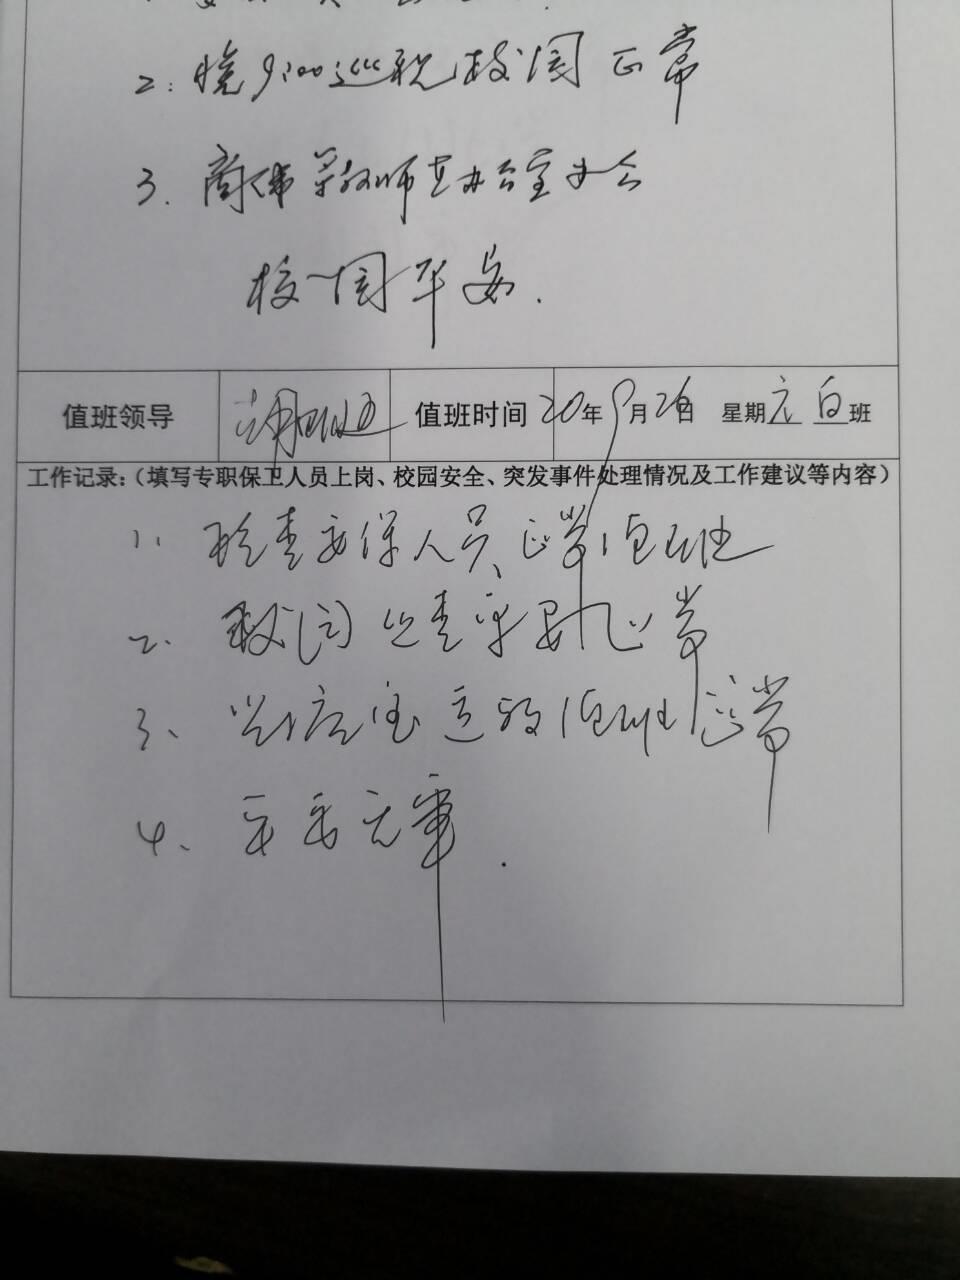 2. 晚9:00巡视校园正常
3. 商伟等教师在办公室办公
校园平安.
值班领导 值班时间 20年9月26日 星期六白班
工作记录：（填写专职保卫人员上岗、校园安全、突发事件处理情况及工作建议等内容）
1、检查安保人员正常值班
2、校园 查 正常
3、值班正常
4、平安无事.